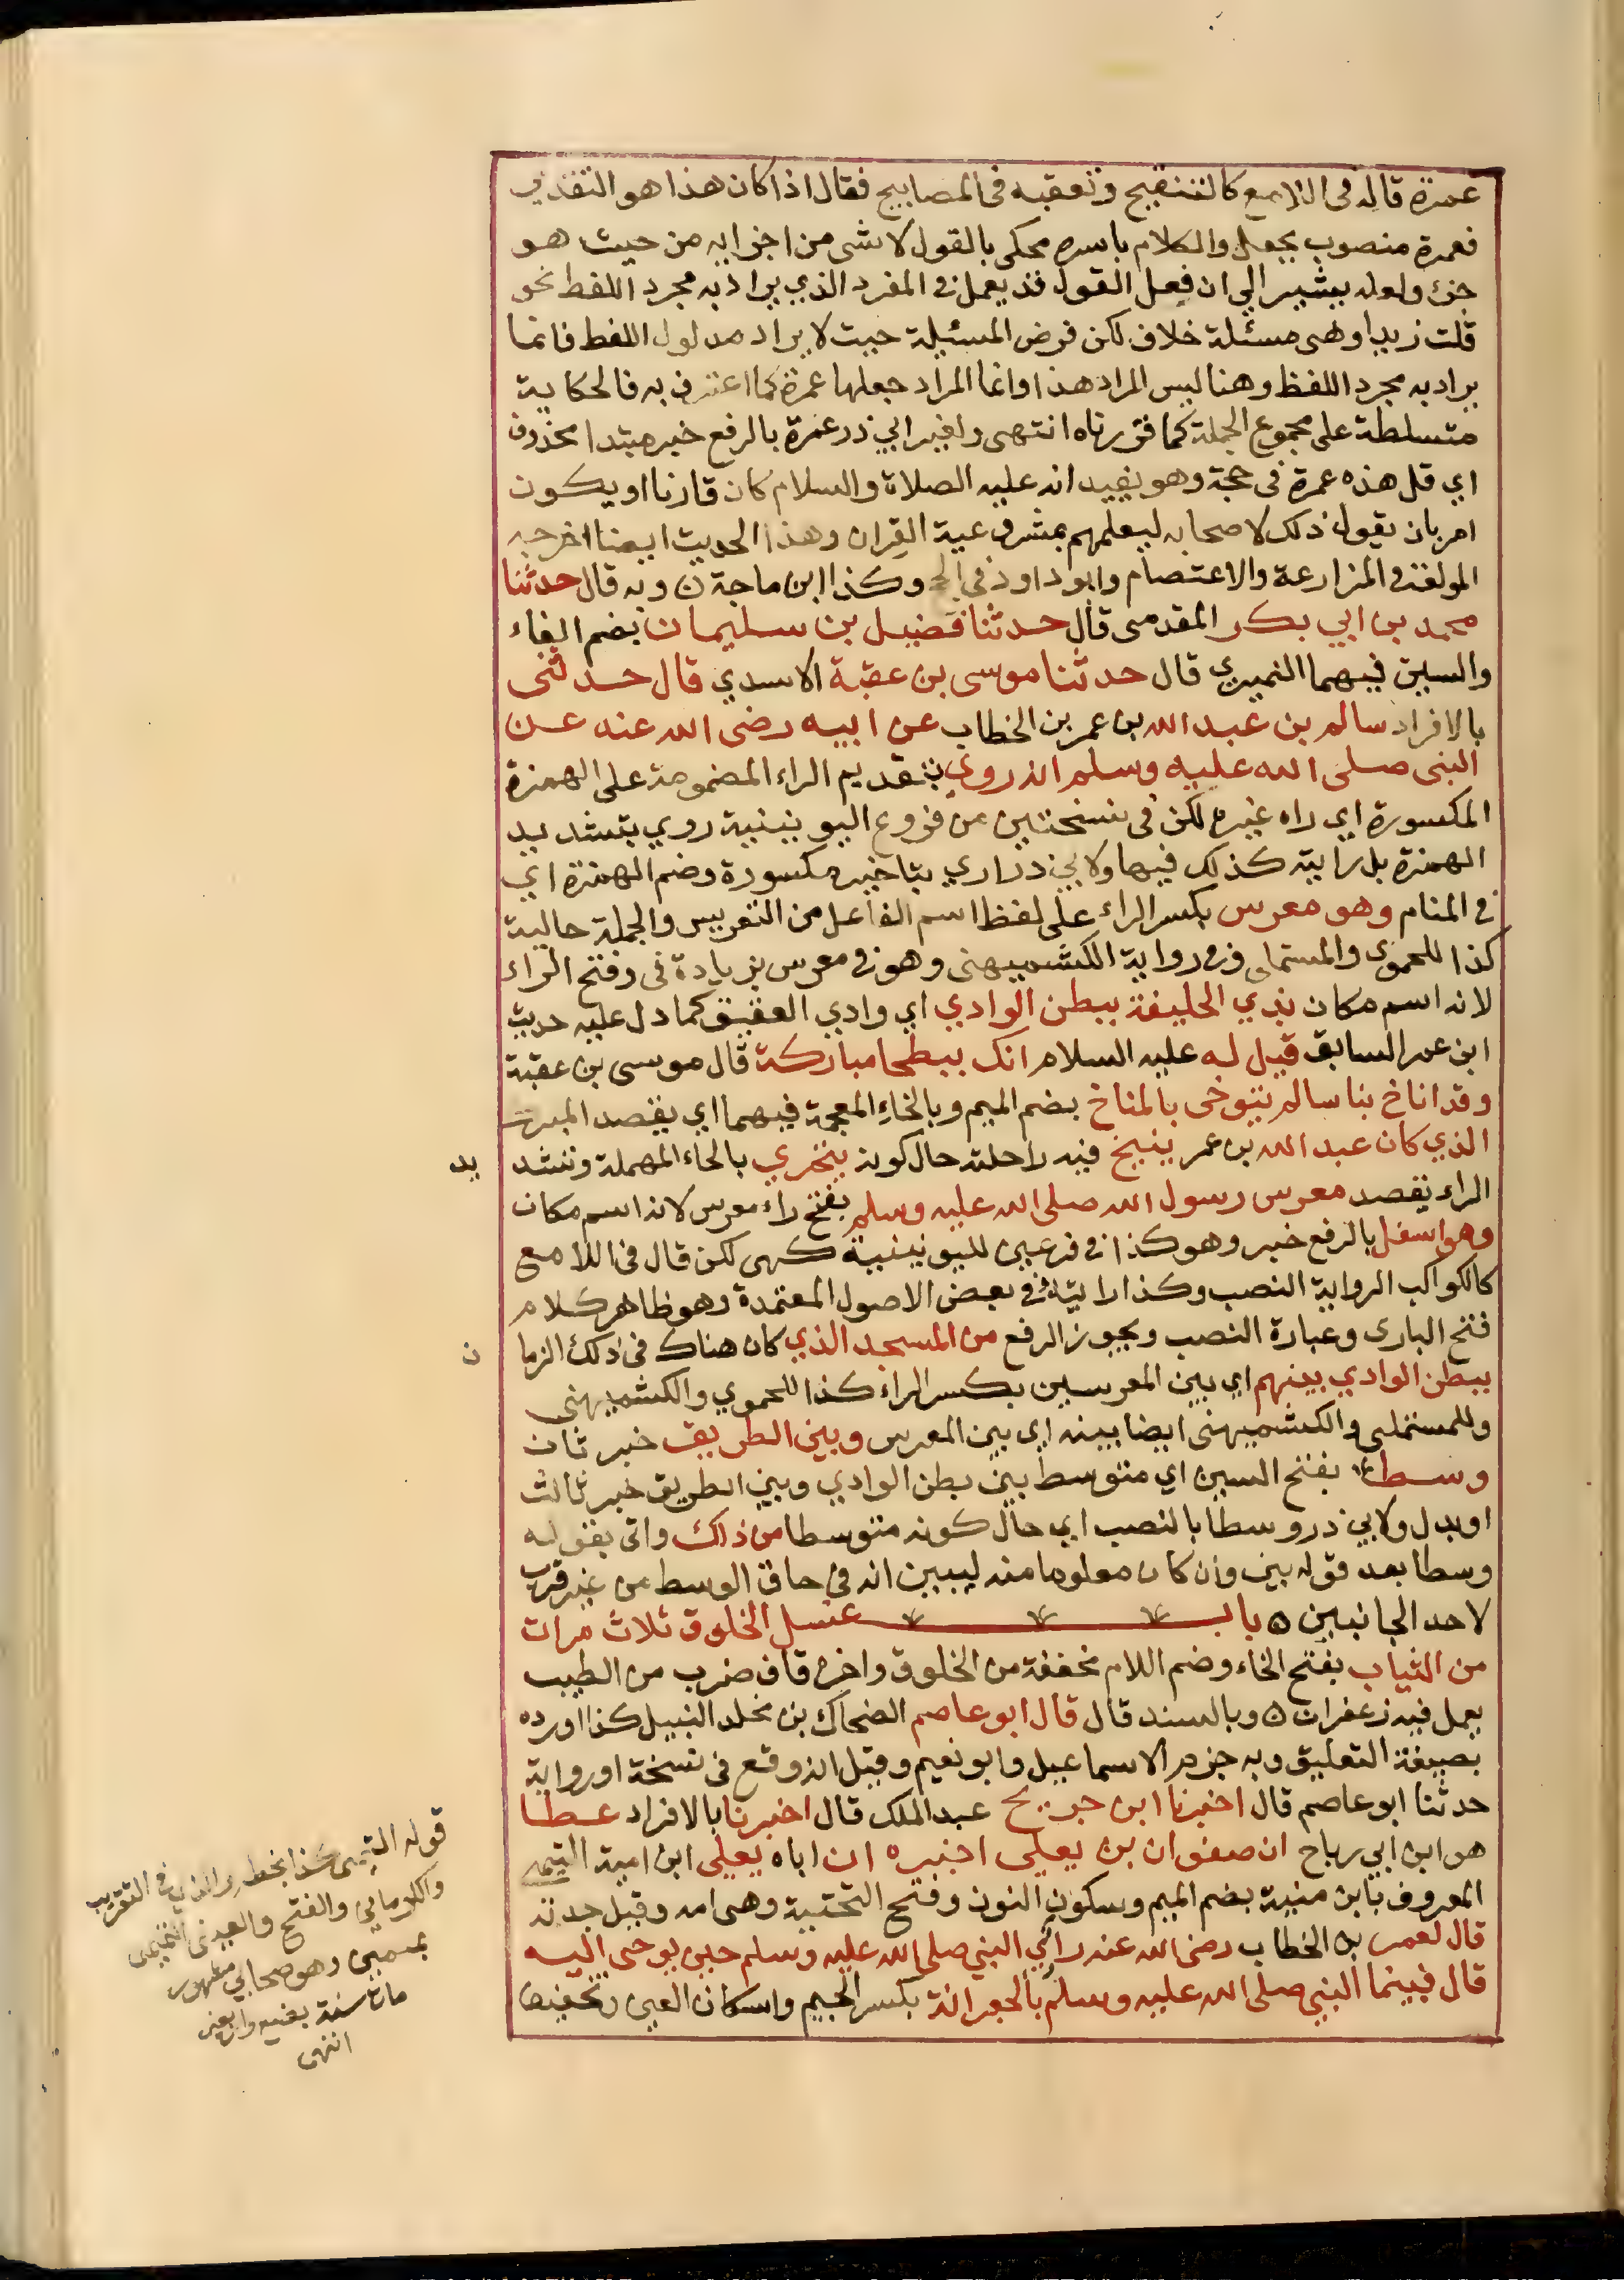 عمرة قاله فى اللامع كالتنقيح وتعقبه فى المصابيح فقال اذا كان هذا هو التقدير
فعمرة منصوب بجعل والكلام باسره محكى بالقول لا شى من اجزايه من حيث هو
جزء ولعله يشير الي ان فعل القول قد يعمل فى المفرد الذي يراد به مجرد اللفظ نحو
قلت زيدا وهى مسئلة خلاف لكن فرض المسئيلة حيث لا يراد مدلول اللفظ فانما
يراد به مجرد اللفظ وهنا ليس المراد هذا وانما المراد جعلها عمرة كما اعترف به فالحكاية
متسلطة على مجموع الجملة كما قررناه انتهى ولغير ابي ذر عمرة بالرفع خبر مبتدا محذوف
اي قل هذه عمرة فى حجة وهو يفيد انه عليه الصلاة والسلام كان قارنا او يكون
امر بان يقول ذلك لاصحابه ليعلمهم بمشروعية القران وهذا الحديث ايضا اخرجه
المولف فى المزارعة والاعتصام وابو داود فى الحج وكذا ابن ماجة ن وبه قال حدثنا
محمد بن ابي بكر المقدمى قال حدثنا فضيل بن سليمان بضم الفاء
والسين فيهما النميري قال حدثنا موسى بن عقبة الاسدي قال حدثنى
بالافراد سالم بن عبد الله بن عمر بن الخطاب عن ابيه رضى الله عنه عن
النبى صلى الله عليه وسلم انه روي بتقديم الراء المضمومة على الهمزة
المكسورة اي راه غيره لكن فى نسختين من فروع اليونينية روي بتشديد
الهمزة بل رايته كذلك فيها ولابي ذر اري بتاخير مكسورة وضم الهمزة اي
فى المنام وهو معرس بكسر الراء على لفظ اسم الفاعل من التعريس والجملة حالية
كذا للحموي والمستملى وفى رواية الكشميهنى وهو فى معرس بزيادة فى وفتح الراء
لانه اسم مكان بذي الحليفة ببطن الوادي اي وادي العقيق كما دل عليه حديث
ابن عمر السابق قيل له عليه السلام انك ببطحا مباركة قال موسى بن عقبة
وقد اناخ بنا سالم يتوخى بالمناخ بضم الميم وبالخاء المعجمة فيهما اي يقصد المبرك
الذي كان عبد الله بن عمر ينيخ فيه راحلته حال كونه يتحري بالحاء المهملة وتشد يد
الراء يقصد معرس رسول الله صلى الله عليه وسلم بفتح راء معرس لانه اسم مكان
وهو اسفل بالرفع خبر وهو كذا فى فرعين لليونينية كهى لكن قال فى اللامع
كالكواكب الرواية النصب وكذا رايته فى بعض الاصول المعتمدة وهو ظاهر كلام
فتح البارى وعبارة النصب ويجوز الرفع من المسجد الذي كان هناك فى ذلك الزما ن
ببطن الوادي بينهم اي بين المعرسين بكسر الراء كذا للحموي والكشميهنى
وللمستملى والكشميهنى ايضا بينه اي بين المعرس وبين الطريق خبر ثان
وسط بفتح السين اي متوسط بين بطن الوادي وبين الطريق خبر ثالث
او بدل ولابي ذر وسطا بالنصب اي حال كونه متوسطا من ذلك واتى بقوله
وسطا بعد قوله بين وان كان معلوما منه ليبين انه فى حاق الوسط من غير قرب
لاحد الجانبين ه باب غسل الخلوق ثلاث مرات
من الثياب بفتح الخاء وضم اللام مخففة من الخلوق واخره قاف ضرب من الطيب
يعمل فيه زعفران ه وبالسند قال قال ابو عاصم الضحاك بن مخلد النبيل كذا اورده
بصيغة التعليق وبه جزم الاسماعيل وابو نعيم وقيل انه وقع فى نسخة او رواية
حدثنا ابو عاصم قال اخبرنا ابن جريج عبد الملك قال اخبرنا بالافراد عطا
هو ابن ابي رباح ان صفوان بن يعلى اخبره ان اباه يعلى ابن امية التيمى
المعروف بابن منية بضم الميم وسكون النون وفتح التحتية وهى امه وقيل جدته
قال لعمر بن الخطاب رضى الله عنه رائي النبي صلى الله عليه وسلم حين يوحى اليه
قال فبينما النبي صلى الله عليه وسلم بالجعرانة بكسر الجيم واسكان العين وتخفيف
قوله التيمى كذا بخطه والذي فى التقريب
والكرماني والفتح والعينى التميمى
بميمين وهو صحابي مشهور
مات سنة بضع واربعين
انتهى